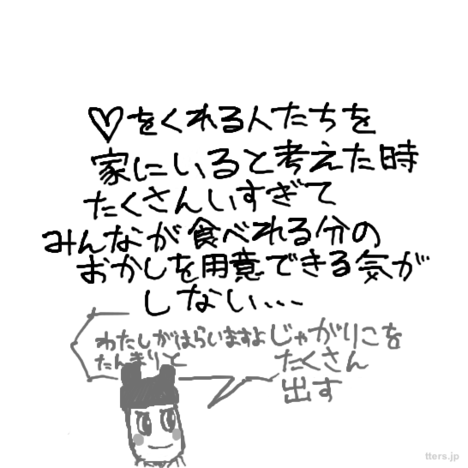 ♡をくれる人たちを
家にいると考えた時
たくさんいすぎて
みんなが食べれる分の
おかしを用意できる気が
しない...
わたしがはらいますよ
たんまりと
じゃがりこを
たくさん
出す
tters.jp